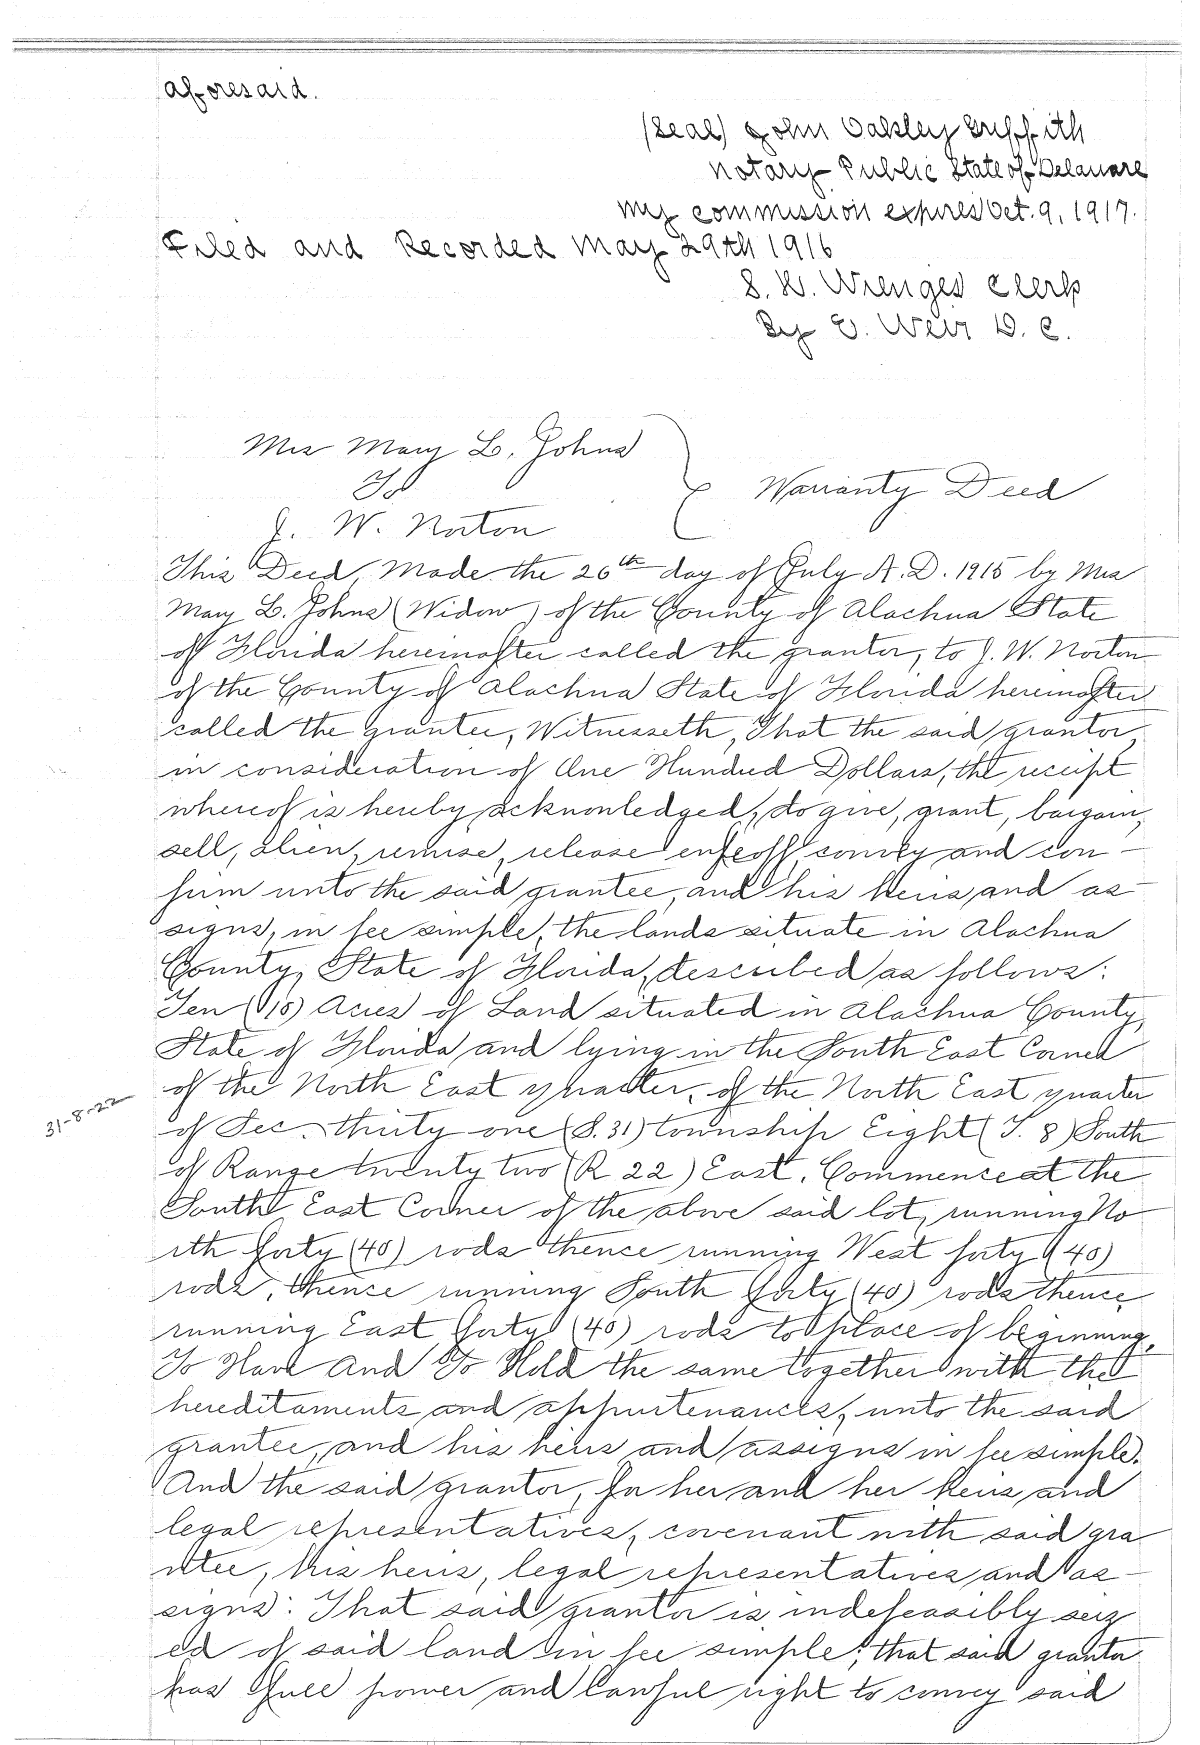 aforesaid.
(Seal) John Oakley Griffith
Notary Public State of Delaware
My commission expires Oct. 9, 1917.
Filed and Recorded May 29th 1916
S. H. Wienges Clerk
By E. Weir D. C.
Mrs Mary L. Johns
To
Warranty Deed
J. W. Norton
This Deed, Made the 26th day of July A. D. 1915 by Mrs
Mary L. Johns (Widow) of the County of Alachua State
of Florida hereinafter called the grantor, to J. W. Norton
of the County of Alachua State of Florida hereinafter
called the grantee, Witnesseth, That the said grantor,
in consideration of One Hundred Dollars, the receipt
whereof is hereby acknowledged, do give, grant, bargain,
sell, alien, remise, release enfeoff, convey and con-
firm unto the said grantee, and his heirs and as-
signs, in fee simple, the lands situate in Alachua
County, State of Florida, described as follows:
Ten (10) Acres of Land situated in Alachua County,
State of Florida and lying in the South East Corner
of the North East quarter, of the North East quarter
31-8-22
of Sec. thirty one (S. 31) township Eight (T. 8) South
of Range twenty two (R 22) East. Commence at the
South East Corner of the above said lot, running No
rth forty (40) rods thence running West forty (40)
rods, thence running South forty (40) rods thence
running East forty (40) rods to place of beginning.
To Have And To Hold the same together with the
hereditaments and appurtenances, unto the said
grantee, and his heirs and assigns in fee simple.
And the said grantor, for her and her heirs and
legal representatives, covenant with said gra
ntee, his heirs, legal representatives and as-
signs: That said grantor is indefeasibly seiz
ed of said land in fee simple; that said grantor
has full power and lawful right to convey said